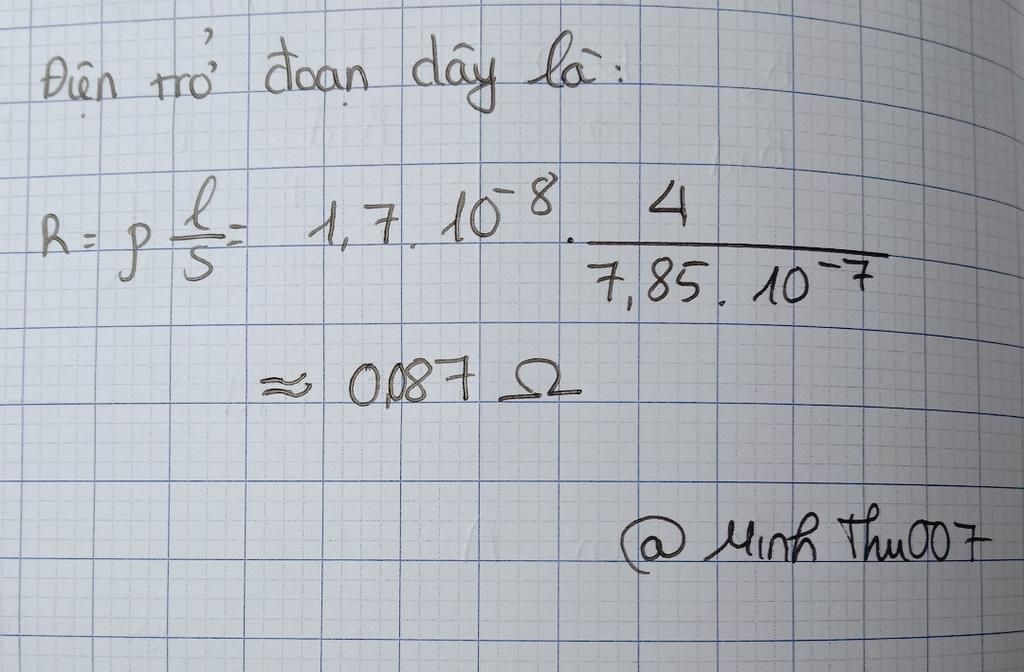 Điện trở đoạn dây là:
R = ρ l/S = 1,7 . 10⁻⁸ . 4/(7,85 . 10⁻⁷)
≈ 0,087 Ω
@ Minh Thu007